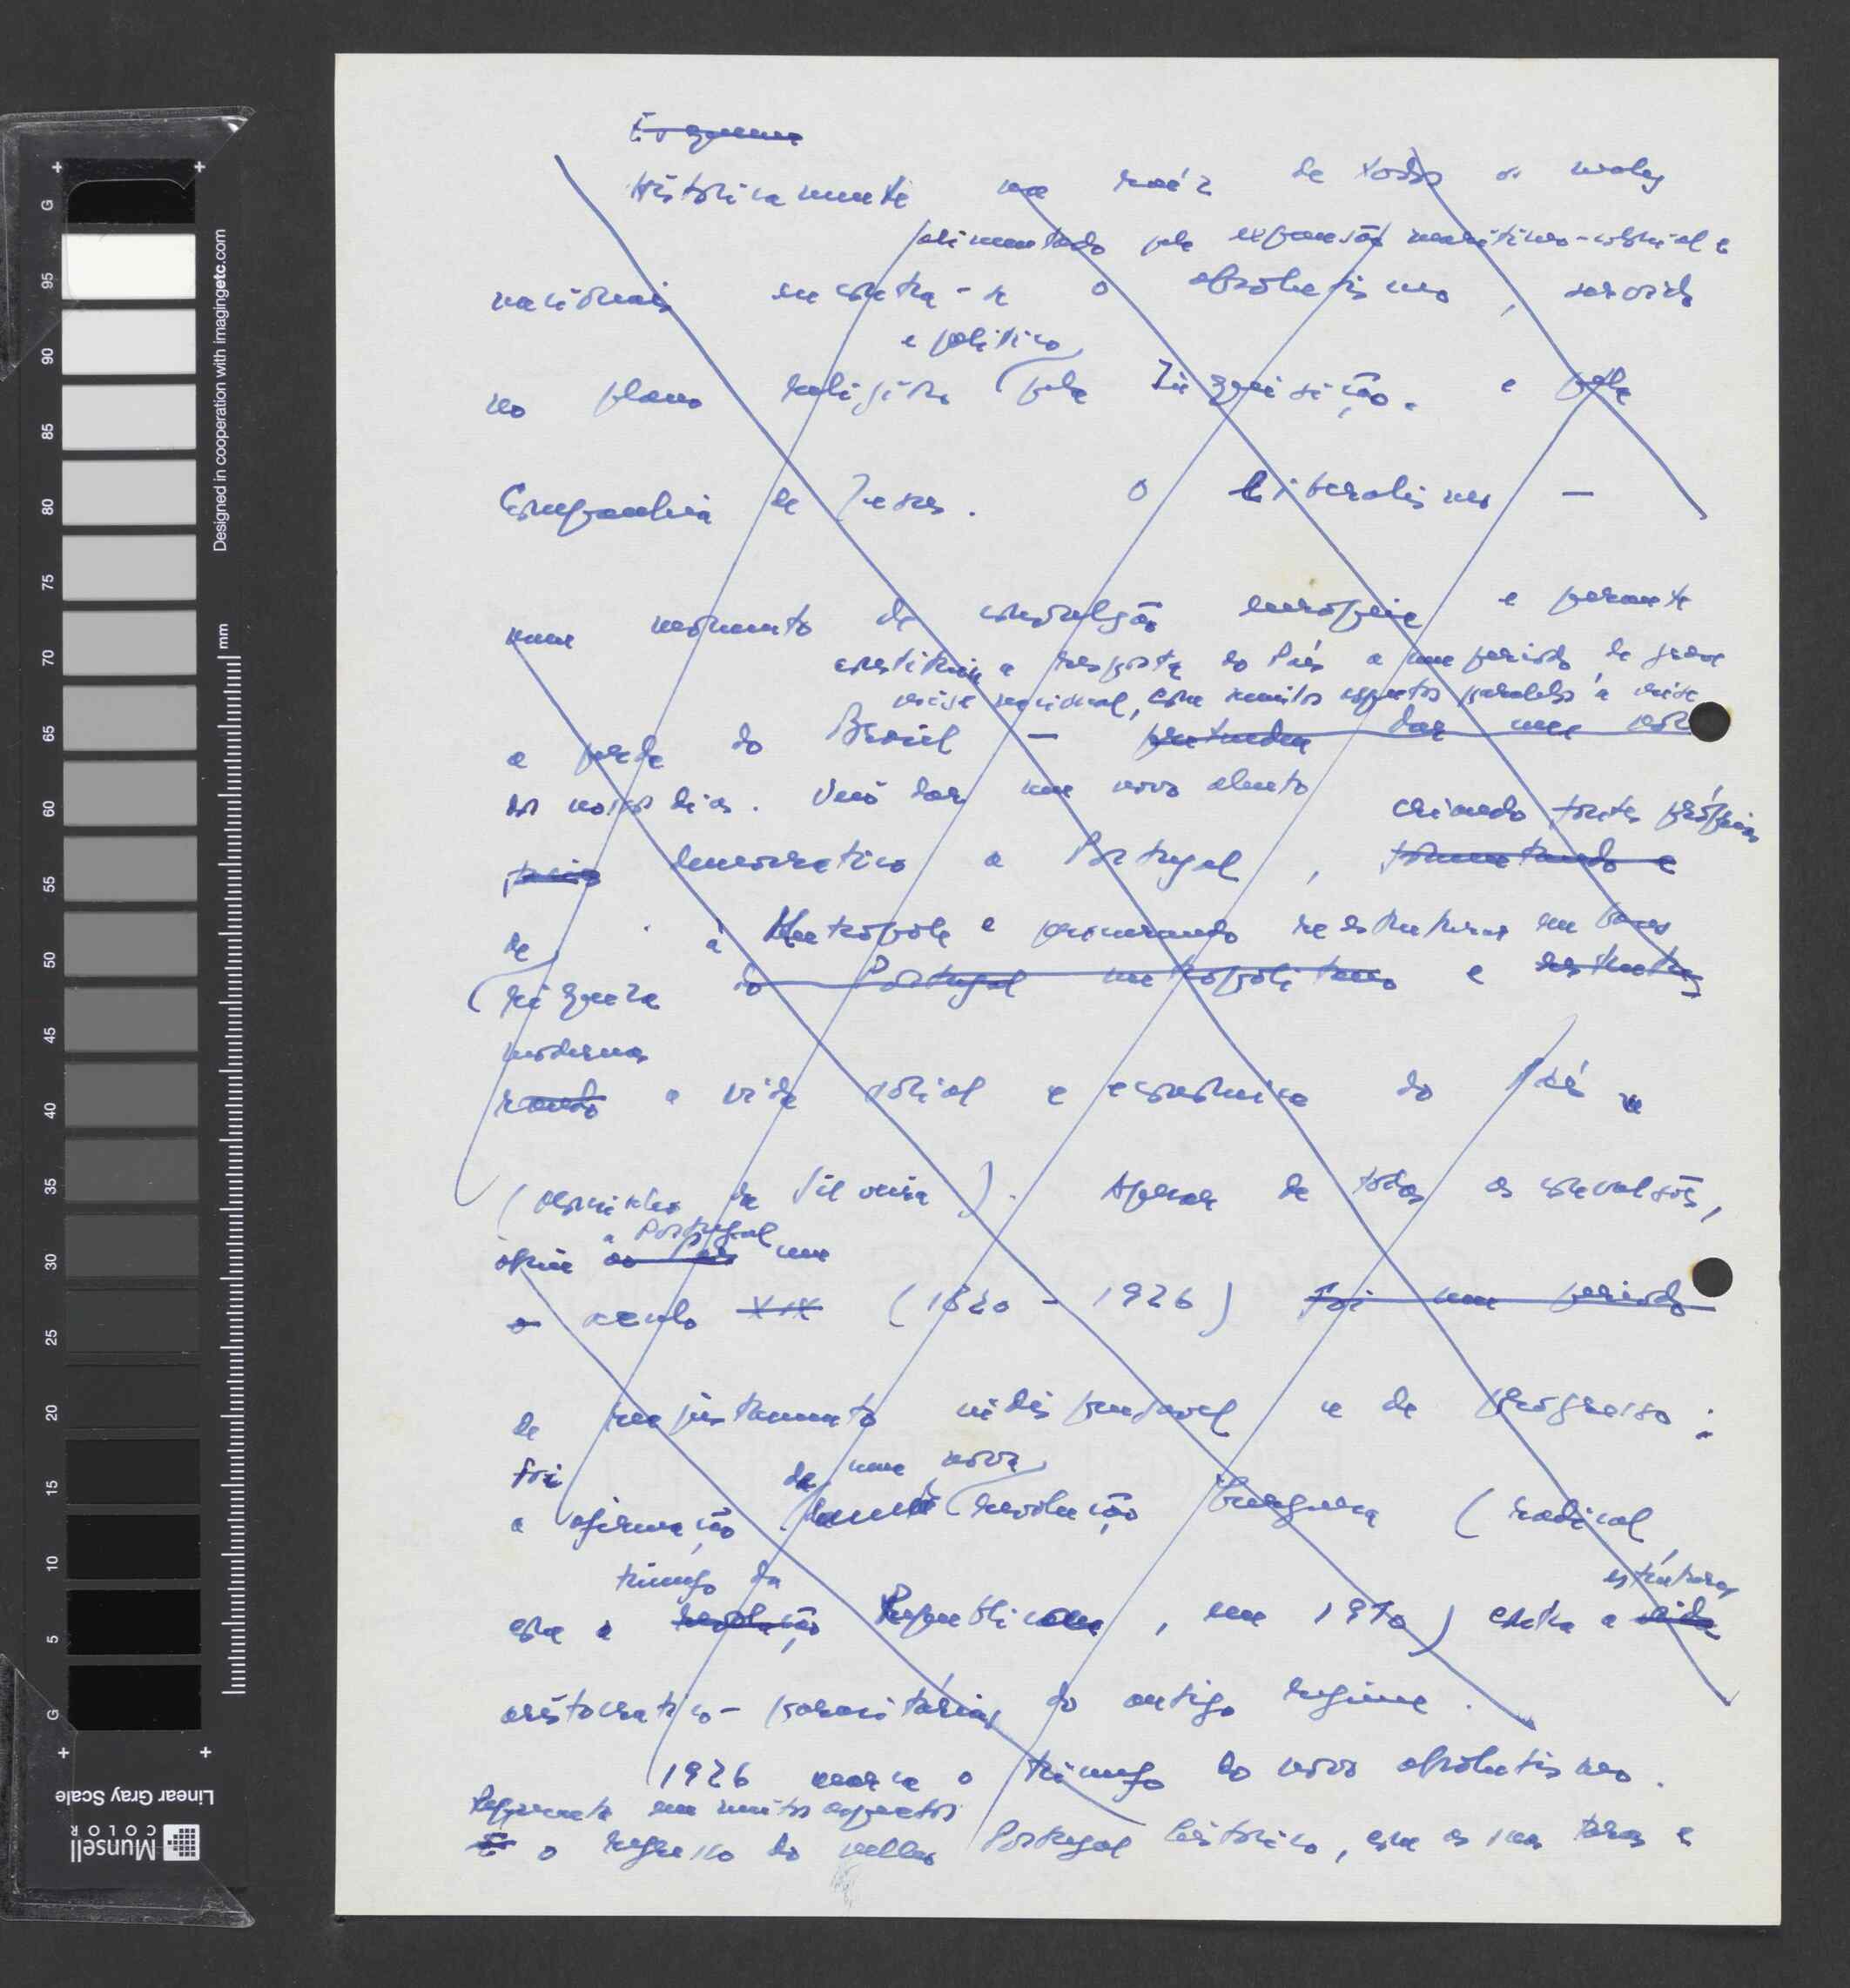 Esquema
Historicamente na raíz de todos os males
alimentado pela expansão marítimo-colonial e
nacionais encontra-se o absolutismo, servido
e político
no plano religioso pela Inquisição. e pela
Companhia de Jesus. O Liberalismo —
num momento de convulsão europeia e perante
constituiu a resposta do País a um período de grave
crise nacional, com muitos aspectos paralelos à crise
a perda do Brasil — pretendeu dar uma
dos nossos dias. Veio dar um novo alento
criando fontes próprias
democrático a Portugal, fomentando a
de à Metrópole e procurando reestruturar em bases
riqueza do Portugal metropolitano e
modernas
a vida social e económica do País
(Mouzinho da Silveira). Apesar de todas as convulsões,
a Portugal um
abriu ao país
o século XIX (1820 - 1926) foi um período
de reajustamento indispensável e de progresso:
foi de uma nova
a afirmação revolução burguesa (radical,
triunfo da estruturas
com a revolução Republicana, em 1910) contra a vida
aristocratico-parasitárias do antigo regime.
1926 marca o triunfo do novo absolutismo.
Representa em muitos aspectos
É o regresso do velho Portugal histórico, com as suas taras e
Munsell
COLOR
Linear Gray Scale
Designed in cooperation with imagingetc.com
mm
G 95 90 85 80 75 70 65 60 55 50 45 40 35 30 25 20 15 10 5 G